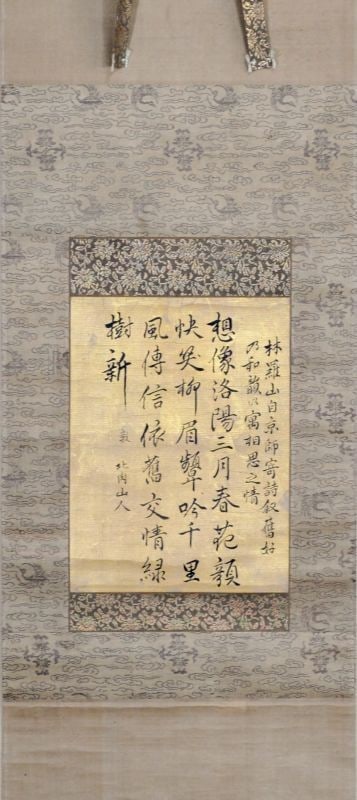 林羅山自京師寄詩叙舊好
乃和韻以寓相思之情
想像洛陽三月春花顔
快笑柳眉顰吟千里
風傳信依舊交情緑
樹新
北肉山人